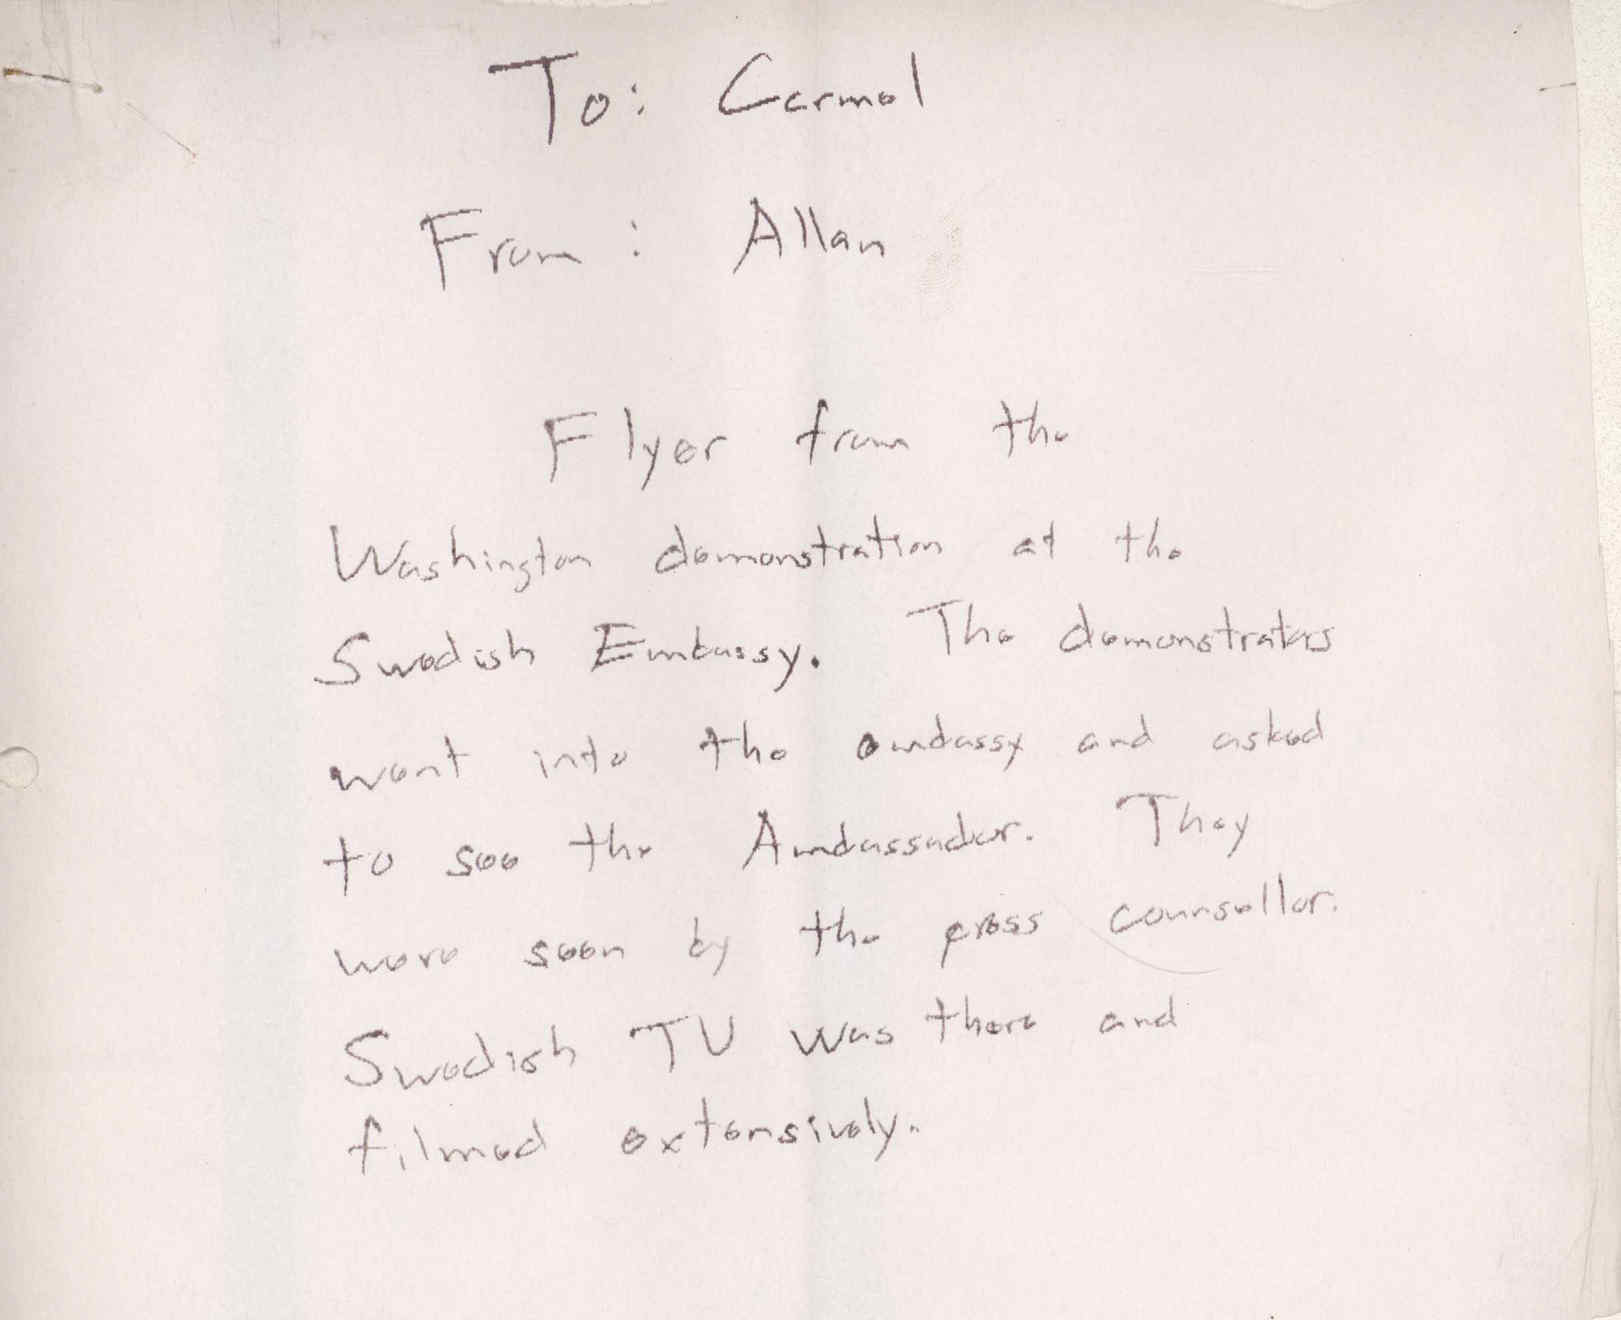 To: Carmel
From: Allan
Flyer from the
Washington demonstration at the
Swedish Embassy. The demonstrators
went into the embassy and asked
to see the Ambassador. They
were seen by the press counsellor.
Swedish TV was there and
filmed extensively.